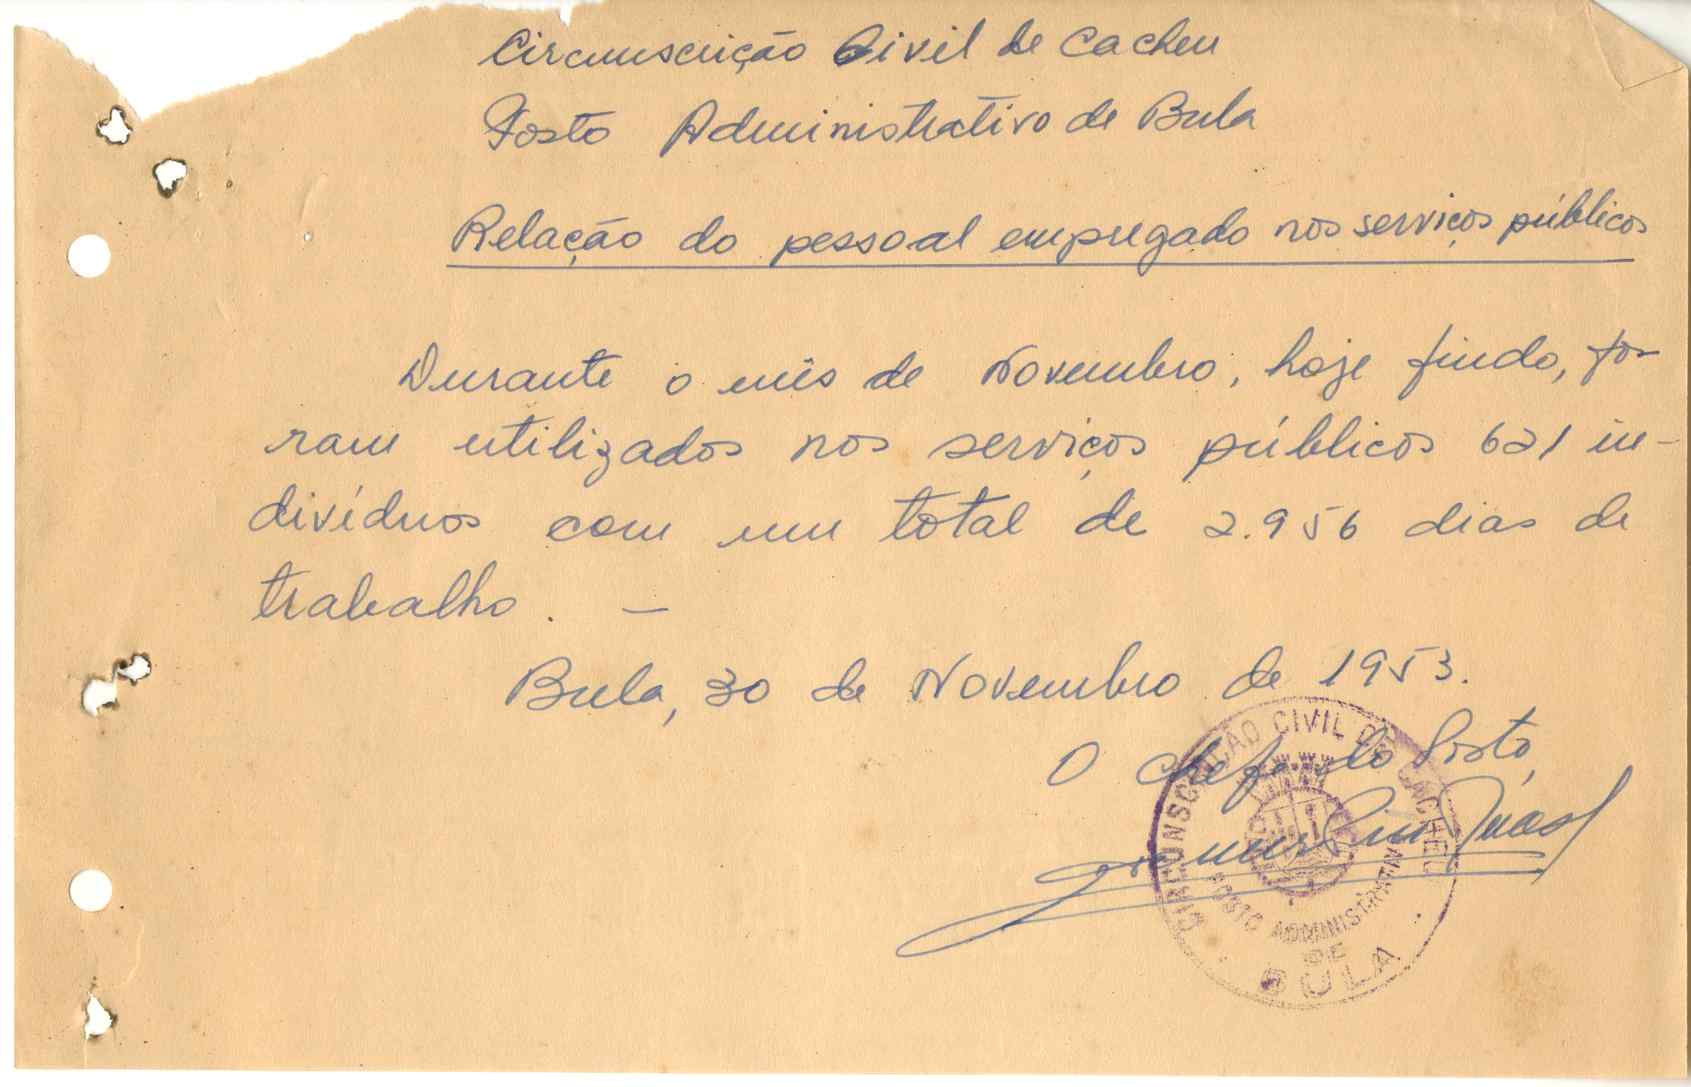 Circunscrição Civil de Cacheu
Posto Administrativo de Bula
Relação do pessoal empregado nos serviços públicos
Durante o mês de Novembro, hoje findo, fo-
ram utilizados nos serviços públicos 621 in-
divíduos com um total de 2.956 dias de
trabalho. —
Bula, 30 de Novembro de 1953.
O Chefe do Posto,
CIRCUNSCRIÇÃO CIVIL DE CACHEU
POSTO ADMINISTRATIVO
DE
BULA